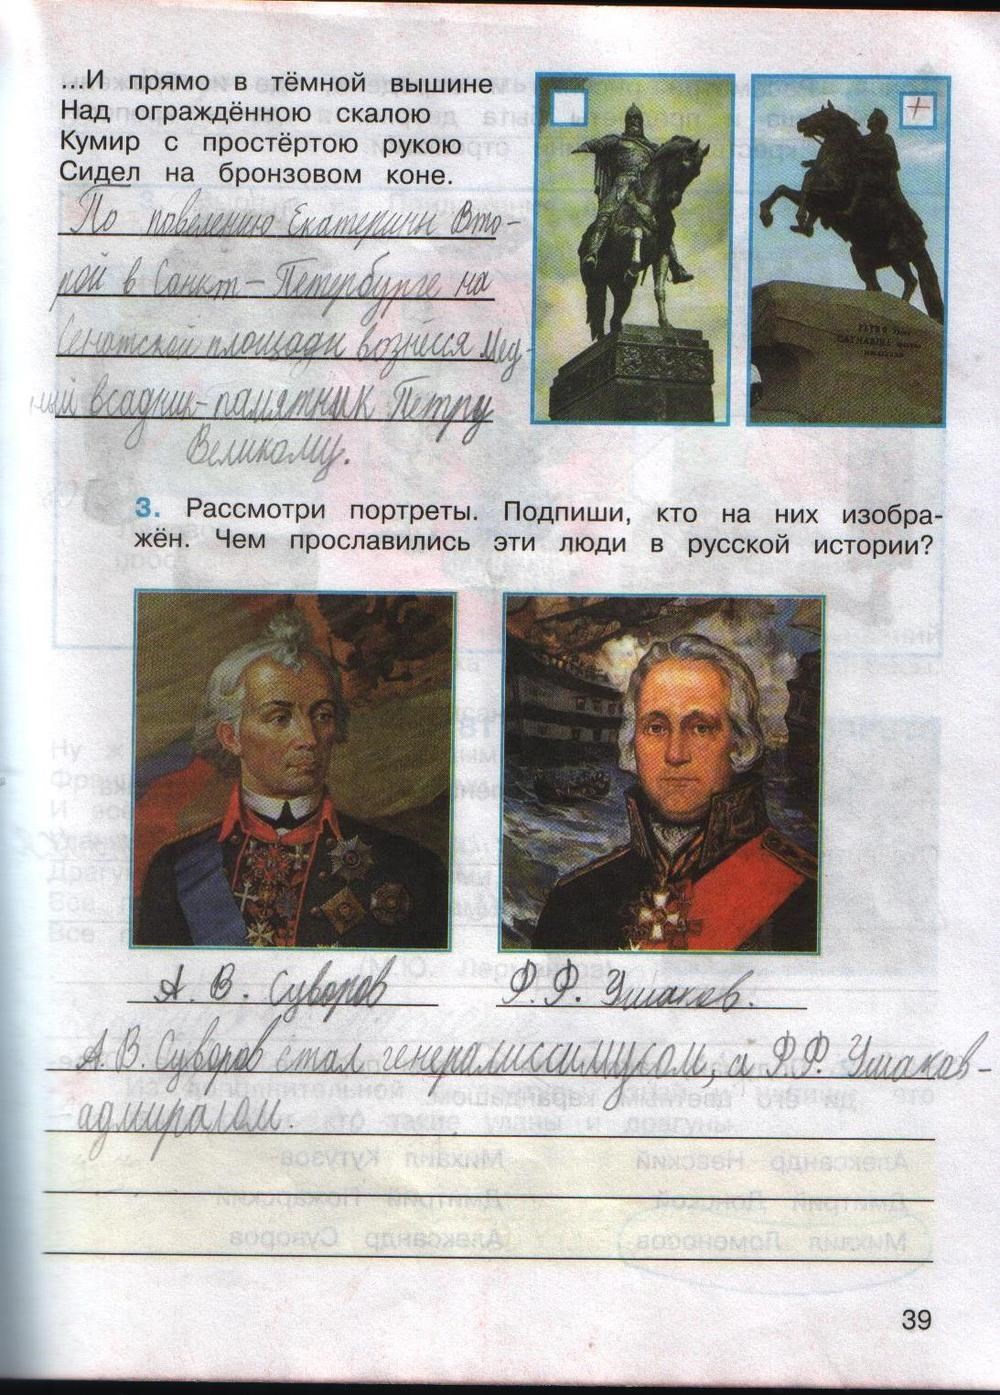 ...И прямо в тёмной вышине
Над ограждённою скалою
Кумир с простёртою рукою
Сидел на бронзовом коне.
По повелению Екатерины Вто-
рой в Санкт-Петербурге на
Сенатской площади вознёсся Мед-
ный всадник-памятник Петру
Великому.
+
PETRO
CATHARINA
3. Рассмотри портреты. Подпиши, кто на них изобра-
жён. Чем прославились эти люди в русской истории?
А. В. Суворов
Ф. Ф. Ушаков.
А. В. Суворов стал генералиссимусом, а Ф.Ф. Ушаков-
адмиралом.
39